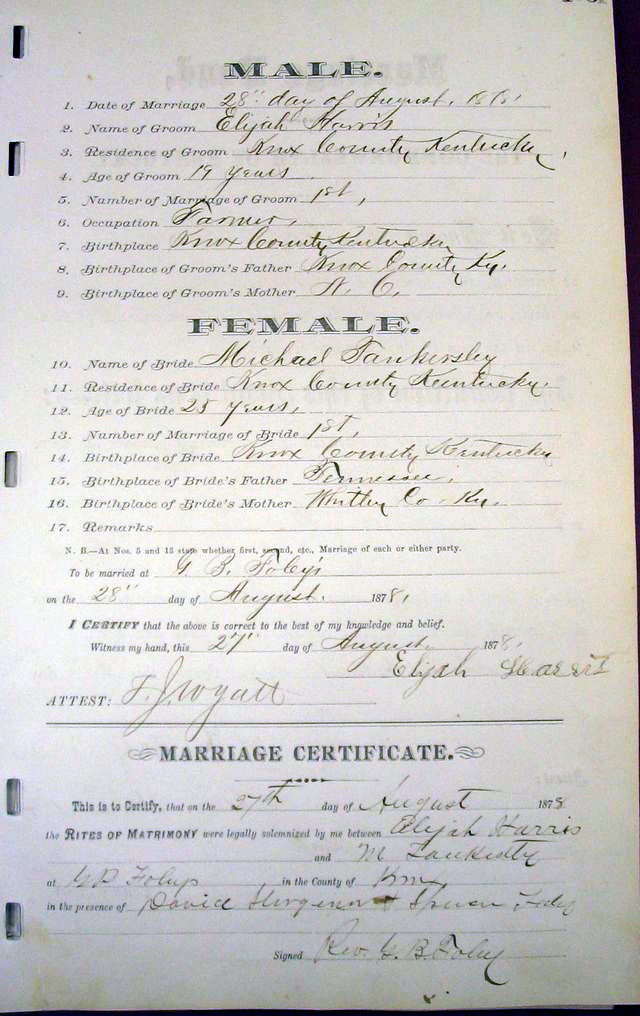 MALE.
1. Date of Marriage 28" day of August, 1878,
2. Name of Groom Elijah Harris
3. Residence of Groom Knox County Kentucky,
4. Age of Groom 19 years
5. Number of Marriage of Groom 1st,
6. Occupation Farmer,
7. Birthplace Knox County Kentucky
8. Birthplace of Groom's Father Knox County Ky.
9. Birthplace of Groom's Mother N. C.
FEMALE.
10. Name of Bride Michael Tankersley
11. Residence of Bride Knox County Kentucky
12. Age of Bride 25 years,
13. Number of Marriage of Bride 1st,
14. Birthplace of Bride Knox County Kentucky
15. Birthplace of Bride's Father Tennessee,
16. Birthplace of Bride's Mother Whitley Co. Ky.
17. Remarks
N. B.—At Nos. 5 and 13 state whether first, second, etc., Marriage of each or either party.
To be married at G. B. Foley's
on the 28" day of August. 1878,
I CERTIFY that the above is correct to the best of my knowledge and belief.
Witness my hand, this 27" day of August, 1878,
Elijah Harris
ATTEST: F. J. Wyatt
MARRIAGE CERTIFICATE.
This is to Certify, that on the 27th day of August 1878
the RITES OF MATRIMONY were legally solemnized by me between Elijah Harris
and M
at G B Foleys in the County of Knox
in the presence of David &
Signed Rev. G. B. Foley